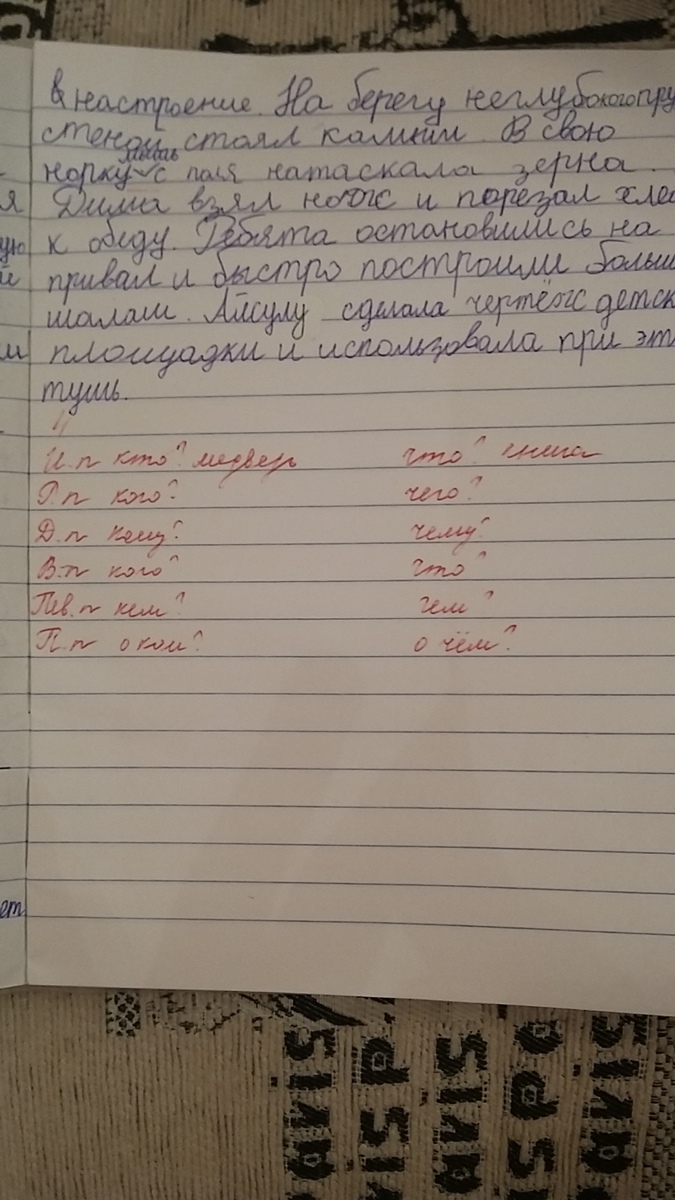 я
ую
й
м
ет
в настроение. На берегу неглубокого пру
стеной стоял камыш. В свою
норку мышь с поля натаскала зерна.
Дима взял нож и порезал хлеб
к обеду. Ребята остановились на
привал и быстро построили больш
шалаш. Айсулу сделала чертёж детск
площадки и использовала при эт
тушь.
И.п кто? медведь что? книга
Р.п кого? чего?
Д.п кому? чему?
В.п кого? что?
Тв.п кем? чем?
П.п о ком? о чём?